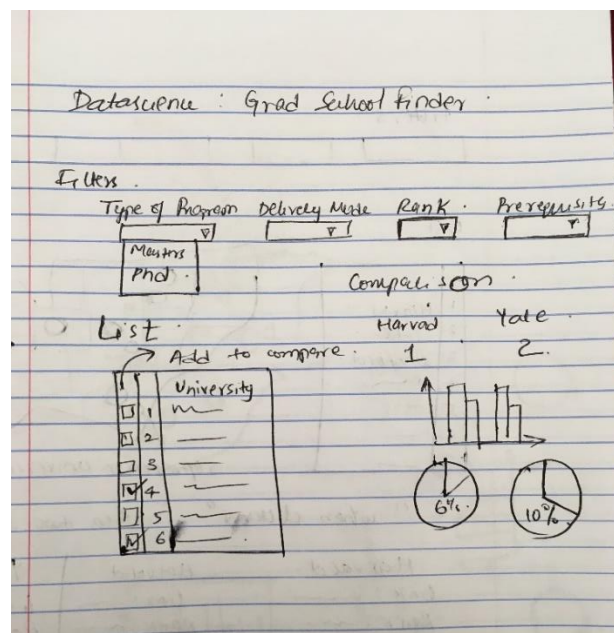 Datascience : Grad School Finder .
Filters .
Type of Program Delivery Mode Rank . Prerequisits .
Masters
Phd .
Comparison .
List . Harvad Yale .
Add to compare . 1 2 .
University
1
2
3
4
5
6
6%
10%